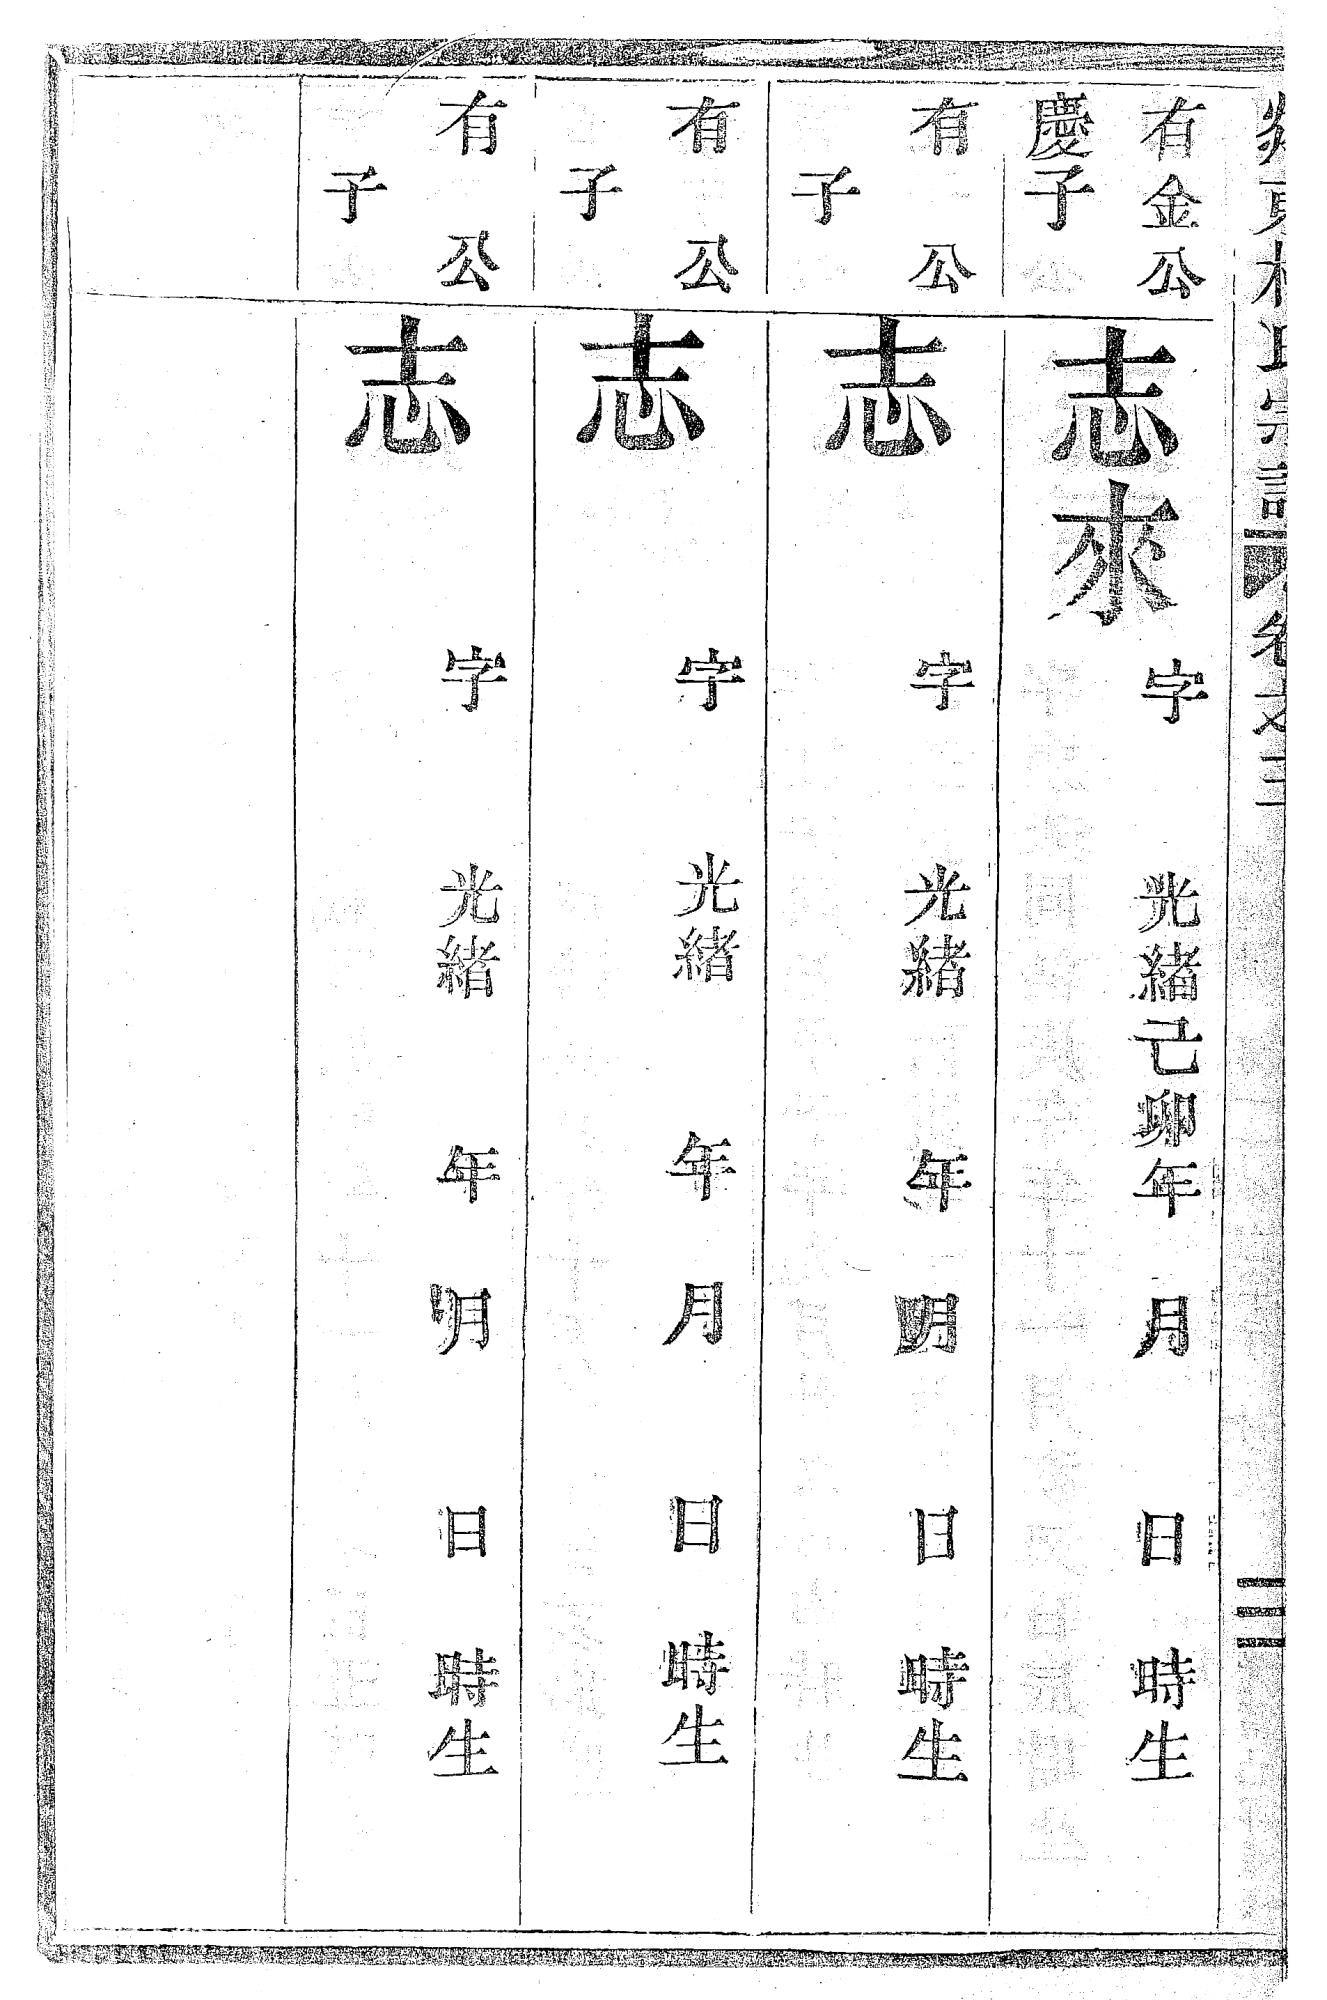 氏宗譜 卷之
有金公
慶子
志來
字 光緒己卯年 月 日 時生
有 公
子
志
字 光緒 年 月 日 時生
有 公
子
志
字 光緒 年 月 日 時生
有 公
子
志
字 光緒 年 月 日 時生